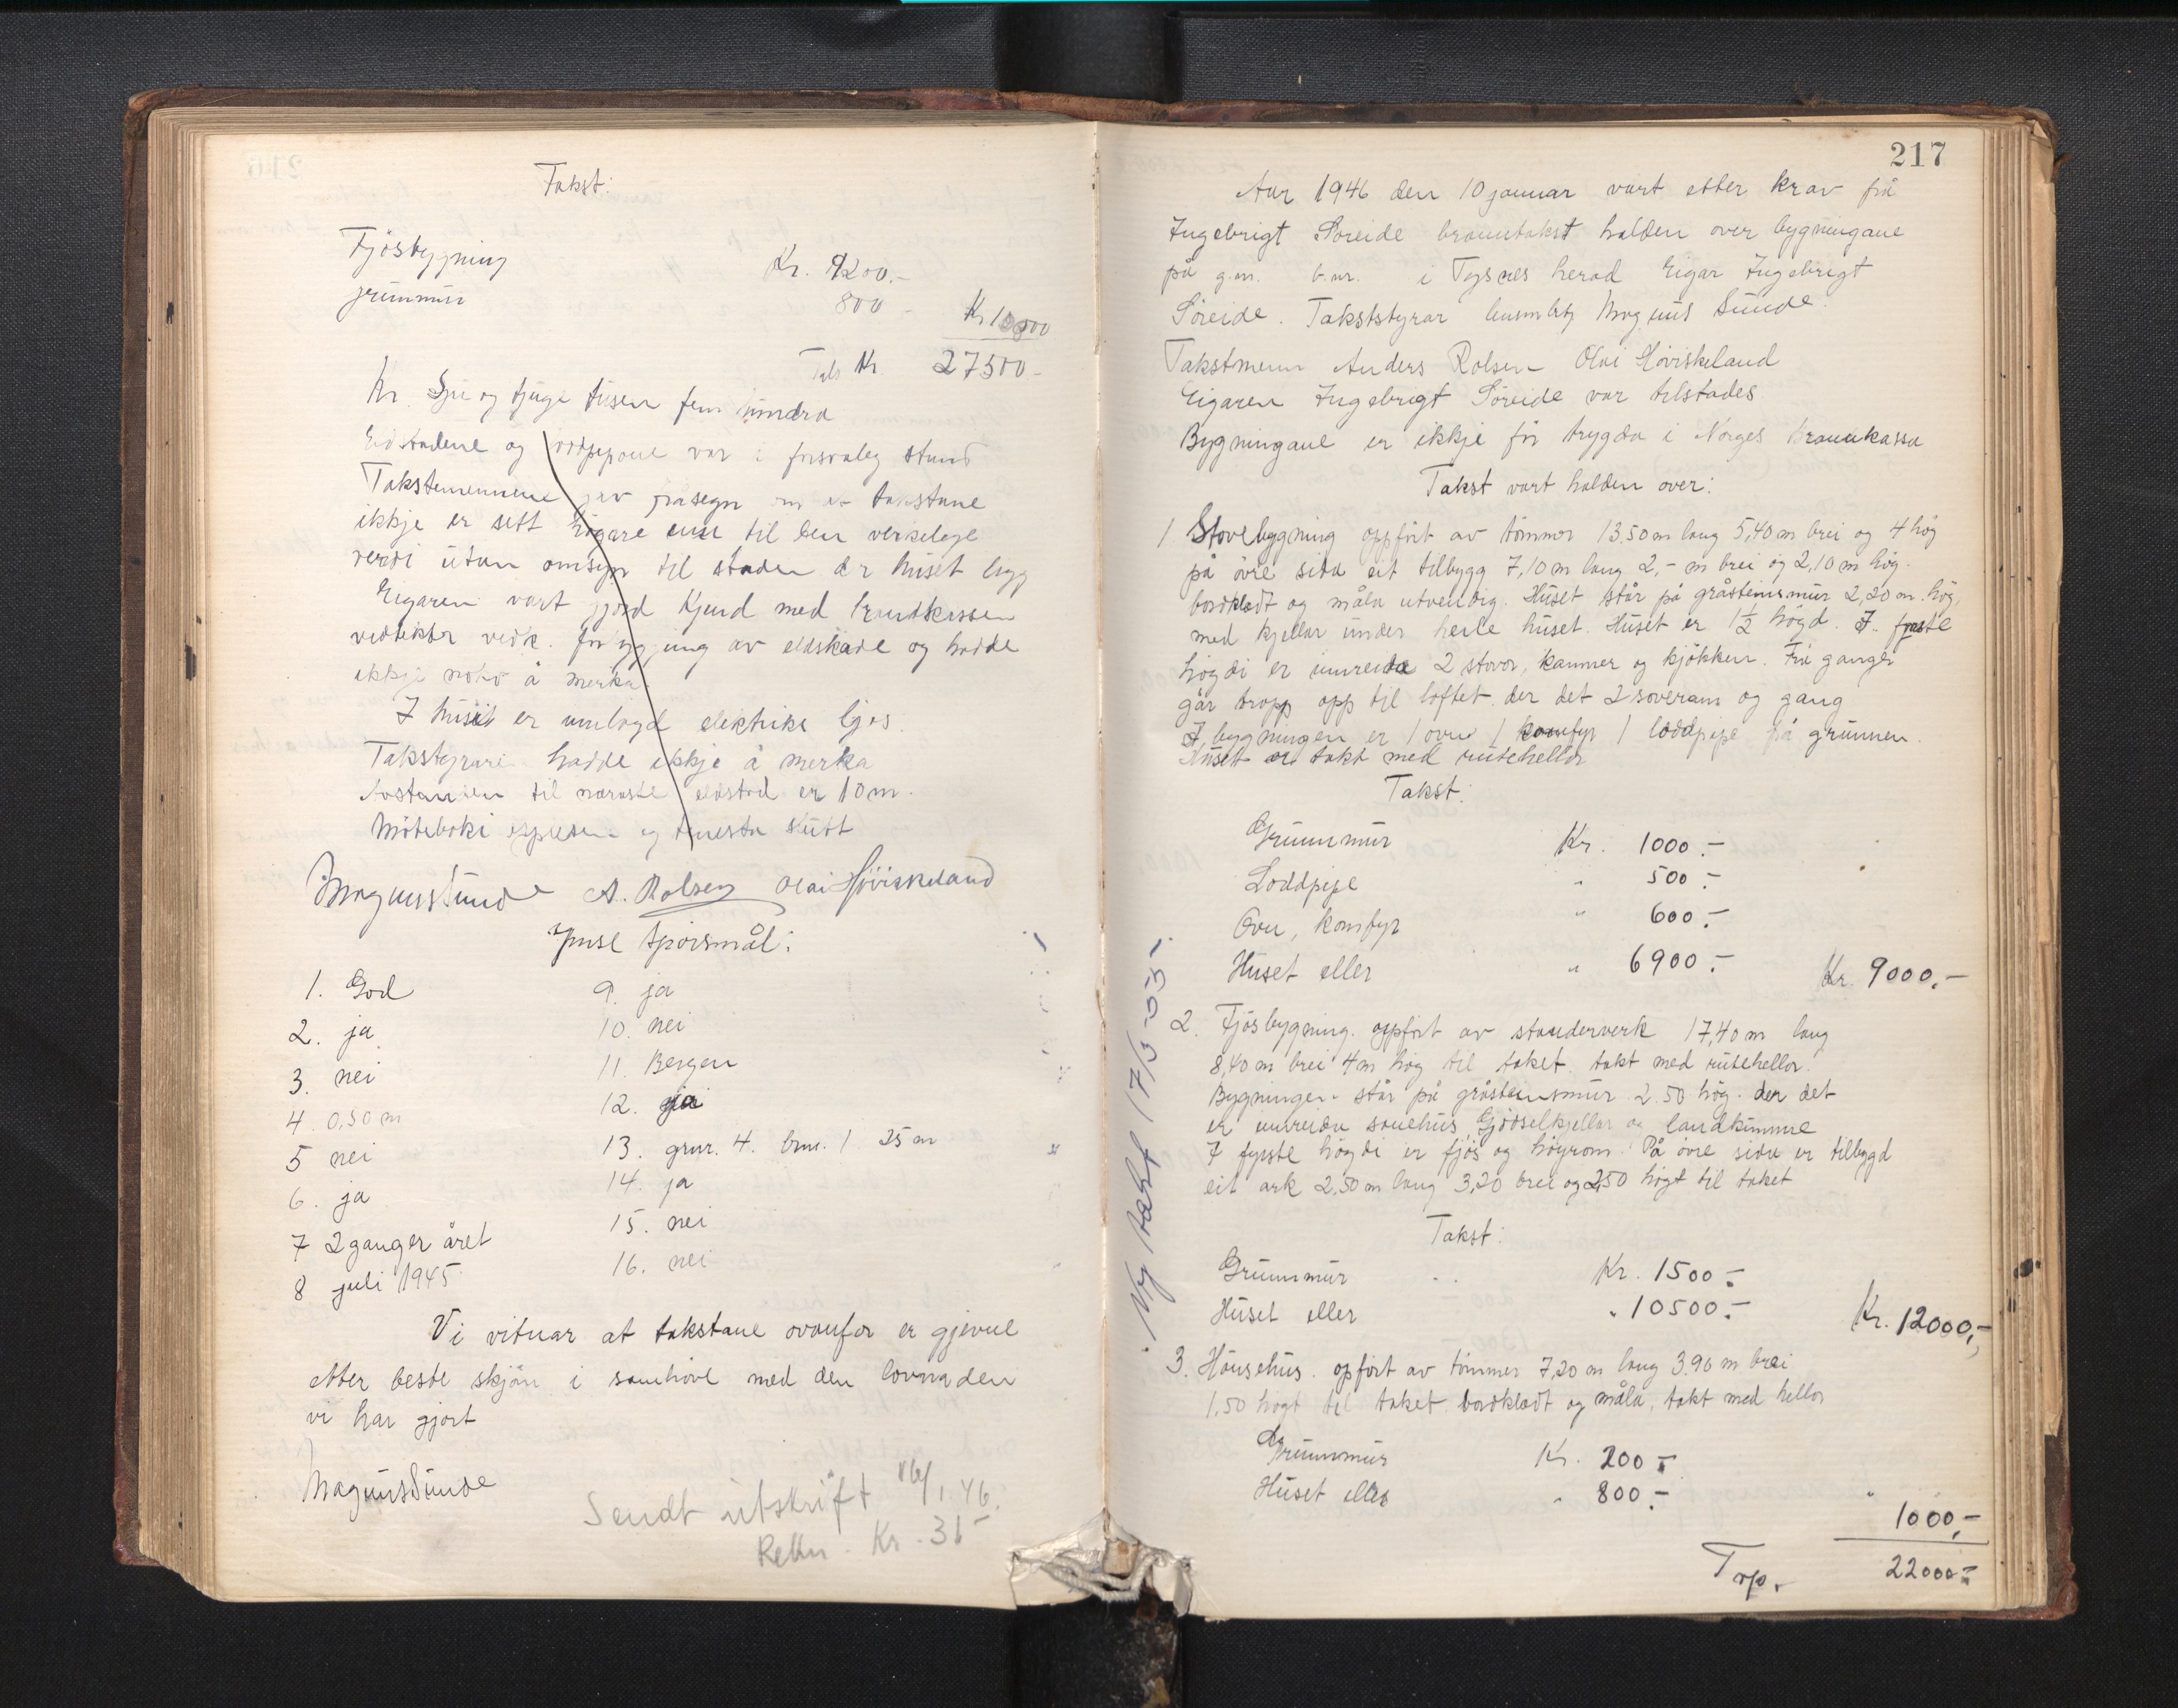 Takst:
Fjösbygning Kr. 9200.-
grunnmur 800 - Kr 10000
Tils Kr 27500-
Kr. Sju og tjuge tusen fem hundra
Eldstadene og loddpipone var i forsvaleg stand
Takstemennene gav fråsegn om at takstane
ikkje er sett högare enn til den verkelege
verdi utan omsyn til staden der huset ligg
Eigaren vart gjord kjend med brandkassen
vedtekter vedk. forbygjing av eldskade og hadde
ikkje noko å merka
I huset er innlagd elektriks ljos.
Takstyrare hadde ikkje å merka
Avstanden til næraste eldstad er 10 m.
Möteboki upplesen og tenesta slutt
Magnus Sunde A. Rolsen Olai Höviskeland
Ymse Spörsmål:
1. God
2. ja
3. nei
4. 0,50 m
5 nei
6. ja
7 2 ganger året
8 juli 1945
9. ja
10. nei
11. Bergen
12. ja
13. gnr. 4. bnr. 1 25 m
14. ja
15. nei
16. nei
Vi vitnar at takstane ovanfor er gjevne
etter beste skjön i samhöve med den lovnaden
vi har gjort
Magnus Sunde
Sendt utskrift 16/1.46.
Rekn. Kr. 36-
217
Aar 1946 den 10 januar vart etter krav frå
Ingebrigt Söreide branntakst halden over bygningane
på g.nr. b.nr. i Tysnes herad Eigar Ingebrigt
Söreide. Takststyrar lensm btj Magnus Sunde.
Takstmenn Anders Rolsen Olai Höviskeland
Eigaren Ingebrigt Söreide var tilstades
Bygningane er ikkje för trygda i Norges Brannkassa
Takst vart halden over:
1 Stovebygning oppfört av tömmer 13.50 m lang 5,40 m brei og 4 hög
på övre sida eit tilbygg 7,10 m lang 2,- m brei og 2,10 m hög.
bordkledt og måla utvendig. Huset står på gråsteinsmur 2,20 m. hög,
med kjellar under heile huset. Huset er 1½ högd. I. fyrste
högdi er innreida 2 stovor, kammer og kjökken. Frå gangen
går tropp opp til loftet der det 2 soverom og gang
I bygningen er 1 ovn 1 komfyr 1 loddpipe på grunnen.
Huset er takt med rutehellor
Takst:
Grunnmur Kr. 1000.-
Loddpipe " 500.-
Ovn, komfyr " 600.-
Huset eller " 6900.- Kr. 9000.-
2. Fjösbygning. oppfört av standerverk 17,40 m lang
8,40 m brei 4 m hög til taket. takt med rutehellor.
Bygningen står på gråsteinsmur 2.50 hög. der det
er innreidu sauehus, Gjödselkjellar og landkumme
I fyrste högdi er fjös og höyrom. På övre sida er tilbygd
eit ark 2,50 m lang 3,20 brei og 2,50 högt til taket
Takst:
Grunnmur Kr. 1500.-
Huset eller " 10500.- Kr. 12000,-
3. Hönsehus. opfört av tömmer 7,20 m lang 3.90 m brei
1,50 högt til taket. bordkledt og måla, takt med hellor
Grunnmur Kr. 200.-
Huset eller " 800.- " 1000,-
Trp. 22000.-
Ny takst 17/3-55-